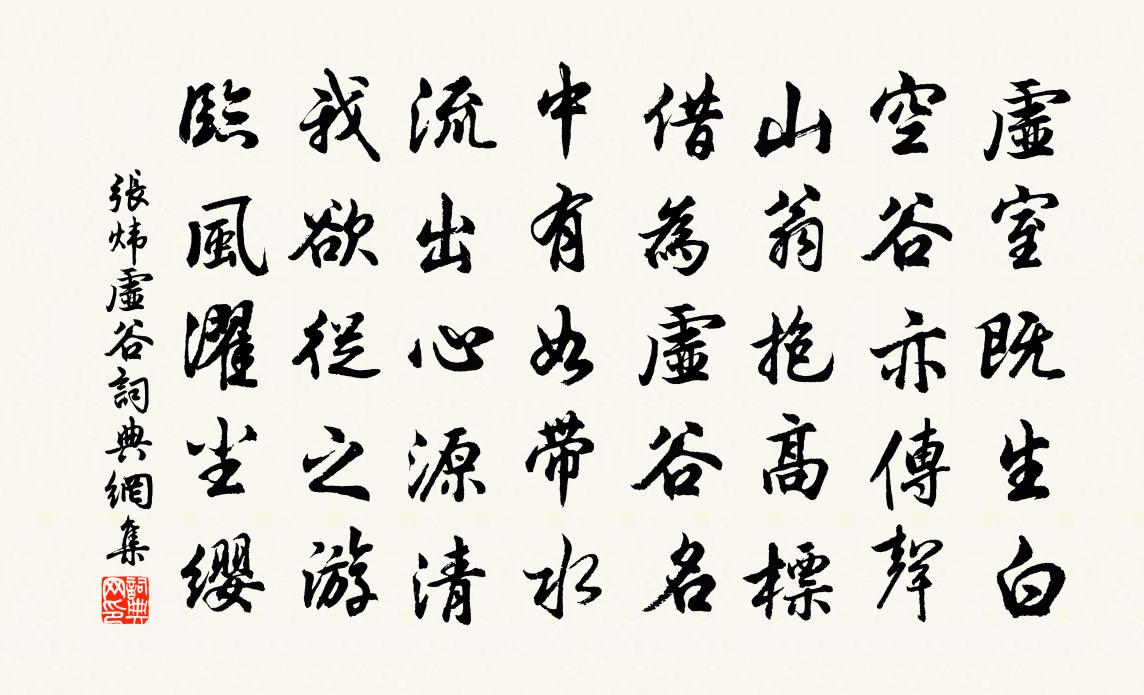 虛室既生白
空谷亦傳聲
山翁抱高標
借為虛谷名
中有如帶水
流出心源清
我欲從之游
臨風濯尘纓
張煒虛谷詞典網集
詞典网印